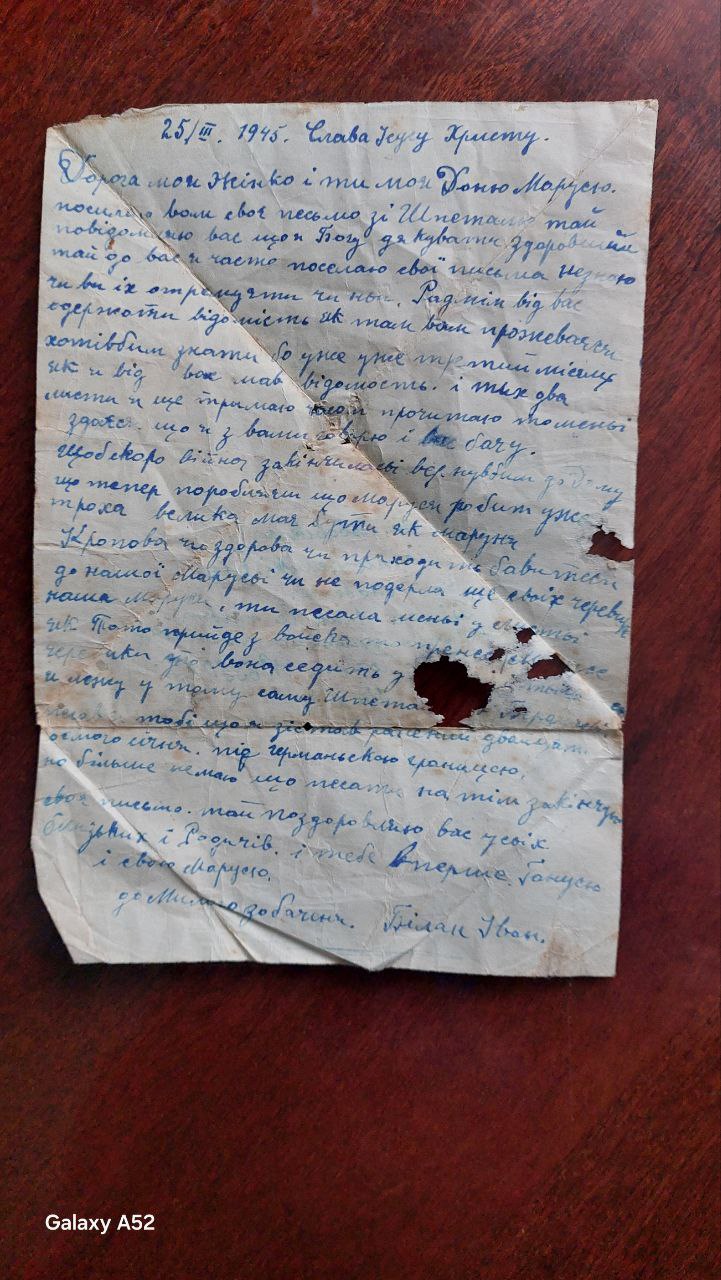 25/III. 1945. Слава Ісусу Христу.
Дорога моя Жінко і ти моя Доню Марусю.
посилаю вам своя письмо зі Шпеталю тай
повідомляю вас що я Богу дякувати здоровший
тай до вас я часто поселаю свої письма незнаю
чи ви їх отремуяти чи ньи. Радъпім від вас
одержати відомість як там вам прожеваячи
хотівбим знати бо уже уже третий місяць
як я від вас мав відомость. і тих два
листи я ще тримаю прочитаю то меньі
здаяся що я з вами говорю і вас бачу.
Щоб скоро війна закінчиласьі вернувбим до дому
що тепер пороблячи що Маруся робит уже
троха велика мая бути як Маруня
Кропова чи здорова чи приходить бавитеси
до нашої Марусьі чи не подерла ще своіх черевиків
наша Маруся, ти песала меньі у листьі
як Тато прийде з войска то
черевики то вона седить у
я лежу у тому саму Шпета
тобі що я зістав ранений двацат
осмого січня. під германьскою границею,
но більше немаю що песати на тім закінчую
своя письмо. тай поздоровляю вас усьіх
близьких і Родичів. і тебе вперше. Ганусю
і свою Марусю.
до Милого зобаченя. Білан Іван.
Galaxy A52